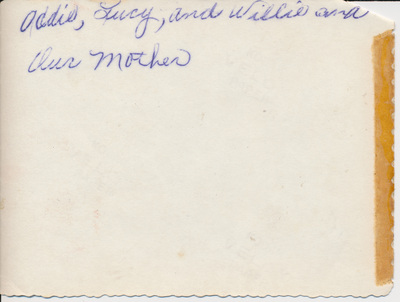 Addie, Lucy, and Willie and
Our Mother